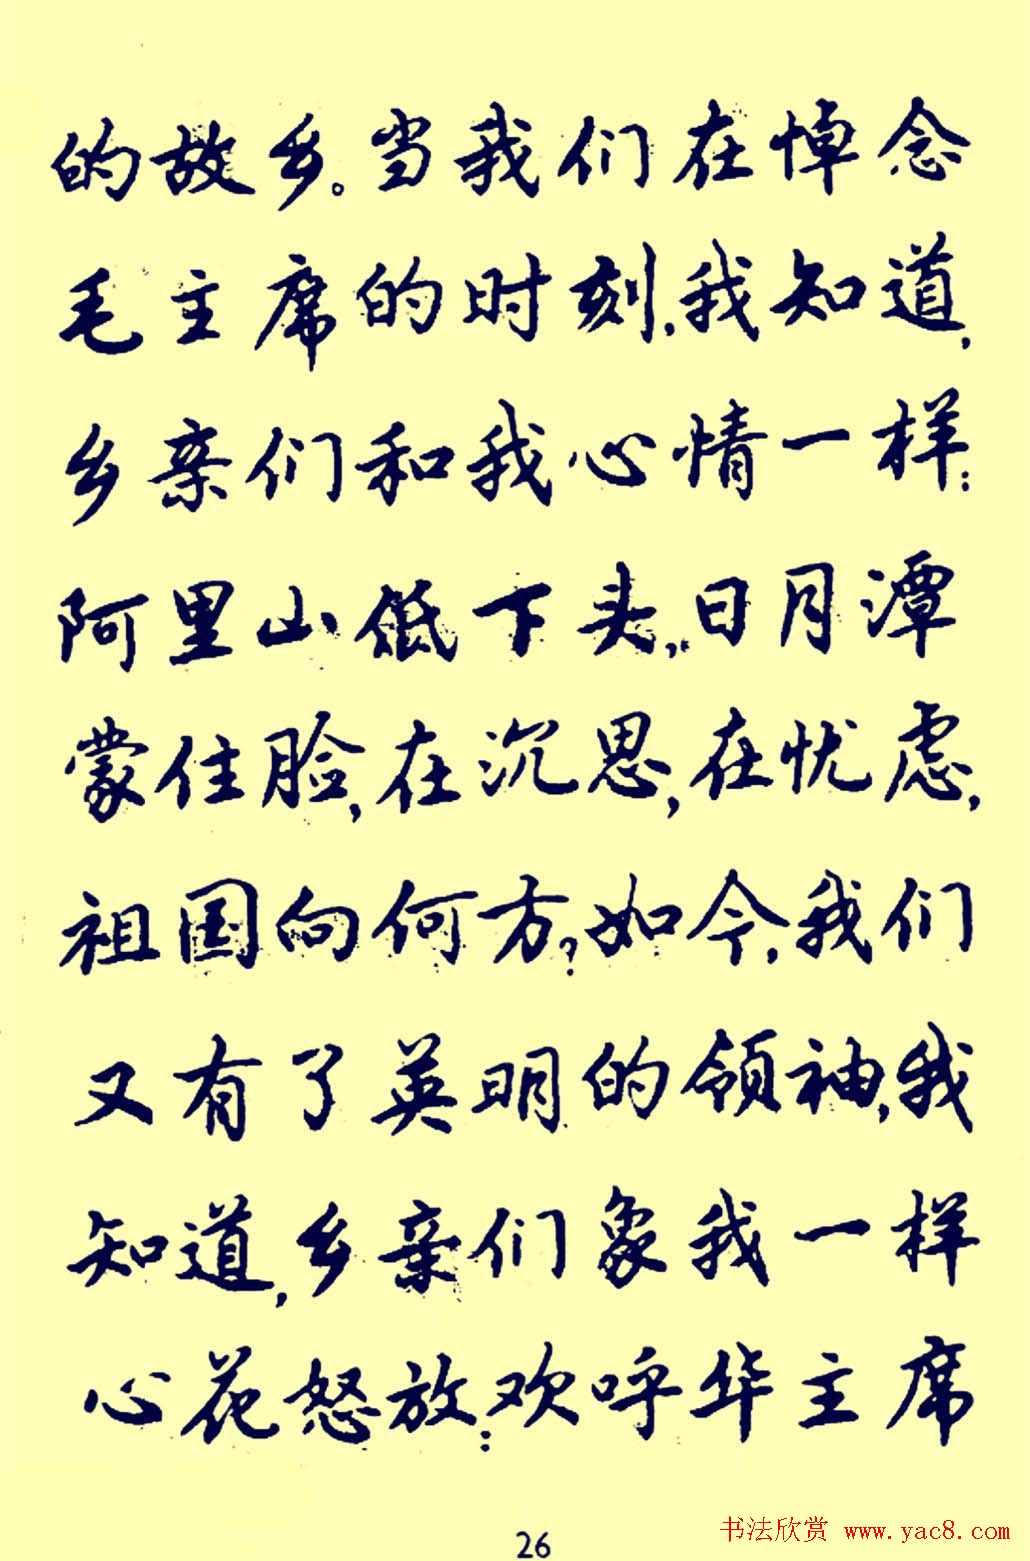 的故乡。当我们在悼念
毛主席的时刻,我知道,
乡亲们和我心情一样:
阿里山低下头,日月潭
蒙住脸,在沉思,在忧虑,
祖国向何方?如今,我们
又有了英明的领袖,我
知道,乡亲们象我一样
心花怒放:欢呼华主席
26
书法欣赏 www.yac8.com